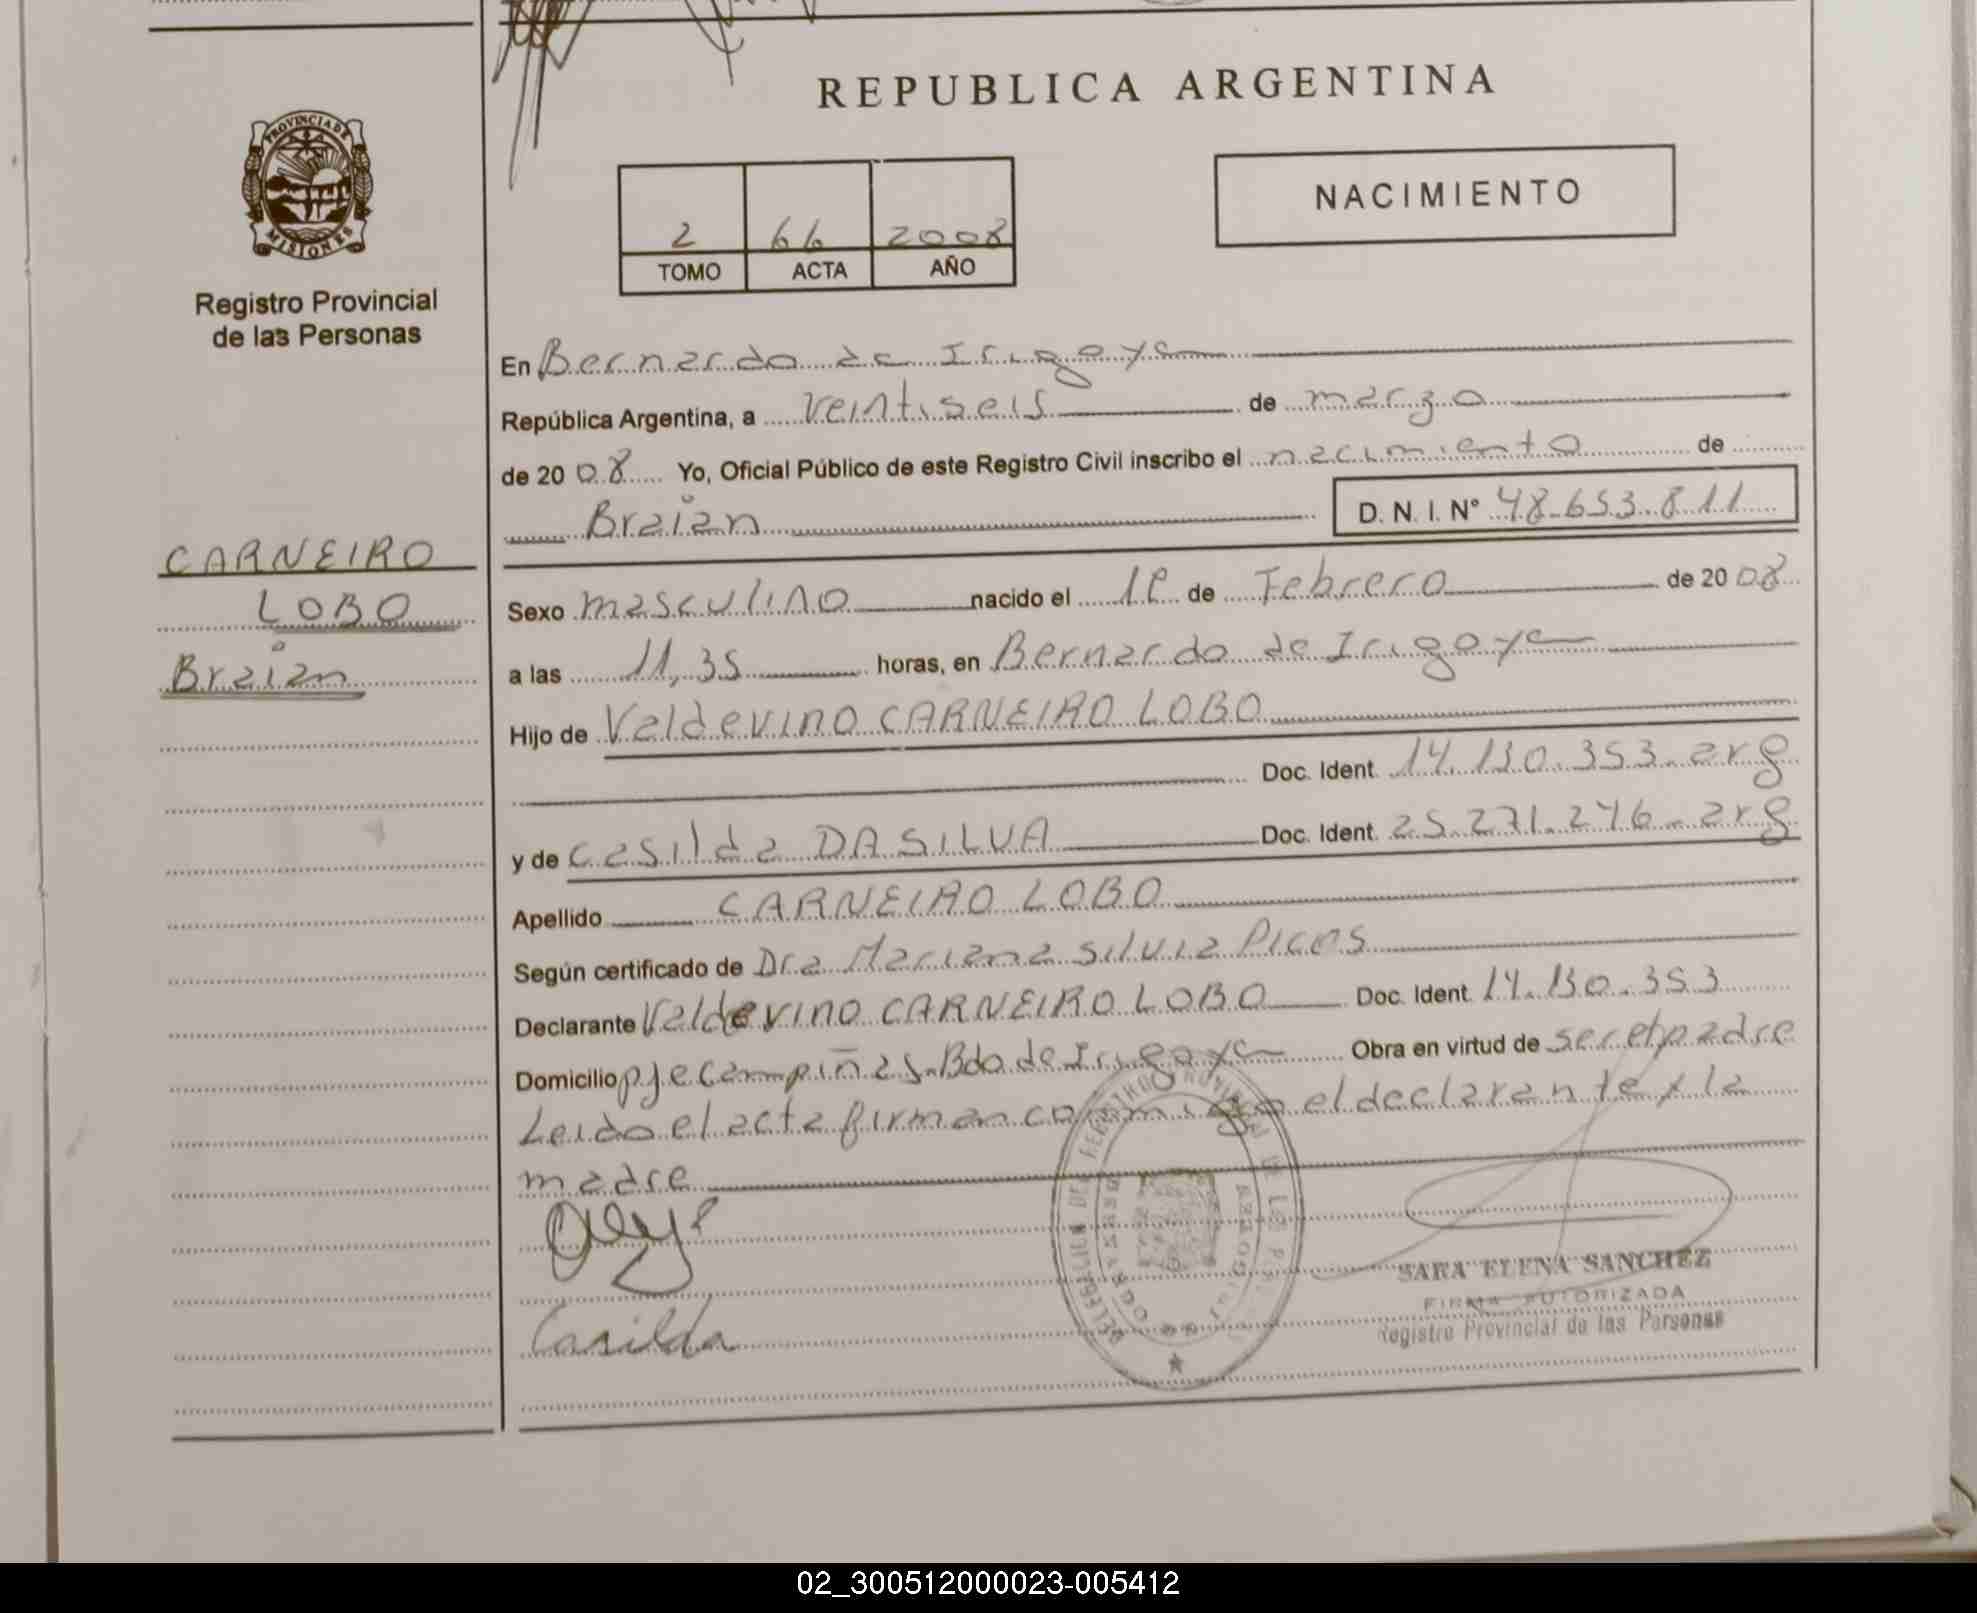 REPUBLICA ARGENTINA
PROVINCIA DE
MISIONES
Registro Provincial
de las Personas
NACIMIENTO
2 66 2008
TOMO ACTA AÑO
En Bernardo de Irigoye
República Argentina, a veintiseis de marzo
de 20 08 Yo, Oficial Público de este Registro Civil inscribo el nacimiento de
Braian D. N. I. Nº 48.653.811
CARNEIRO
LOBO
Braian
Sexo masculino nacido el 1º de Febrero de 20 08
a las 11,35 horas, en Bernardo de Irigoye
Hijo de Valdevino CARNEIRO LOBO
Doc. Ident. 14.130.353-arg
y de Casilda DA SILVA Doc. Ident. 25.271.246-arg
Apellido CARNEIRO LOBO
Según certificado de Dra Mariana Silvia Picos
Declarante Valdevino CARNEIRO LOBO Doc. Ident. 14.130.353
Domicilio pje campiñas-Bdo de Irigoye Obra en virtud de ser el padre
Leido el acta firman conmigo el declarante y la
madre
Casilda
SARA ELENA SANCHEZ
FIRMA AUTORIZADA
Registro Provincial de las Personas
02_300512000023-005412